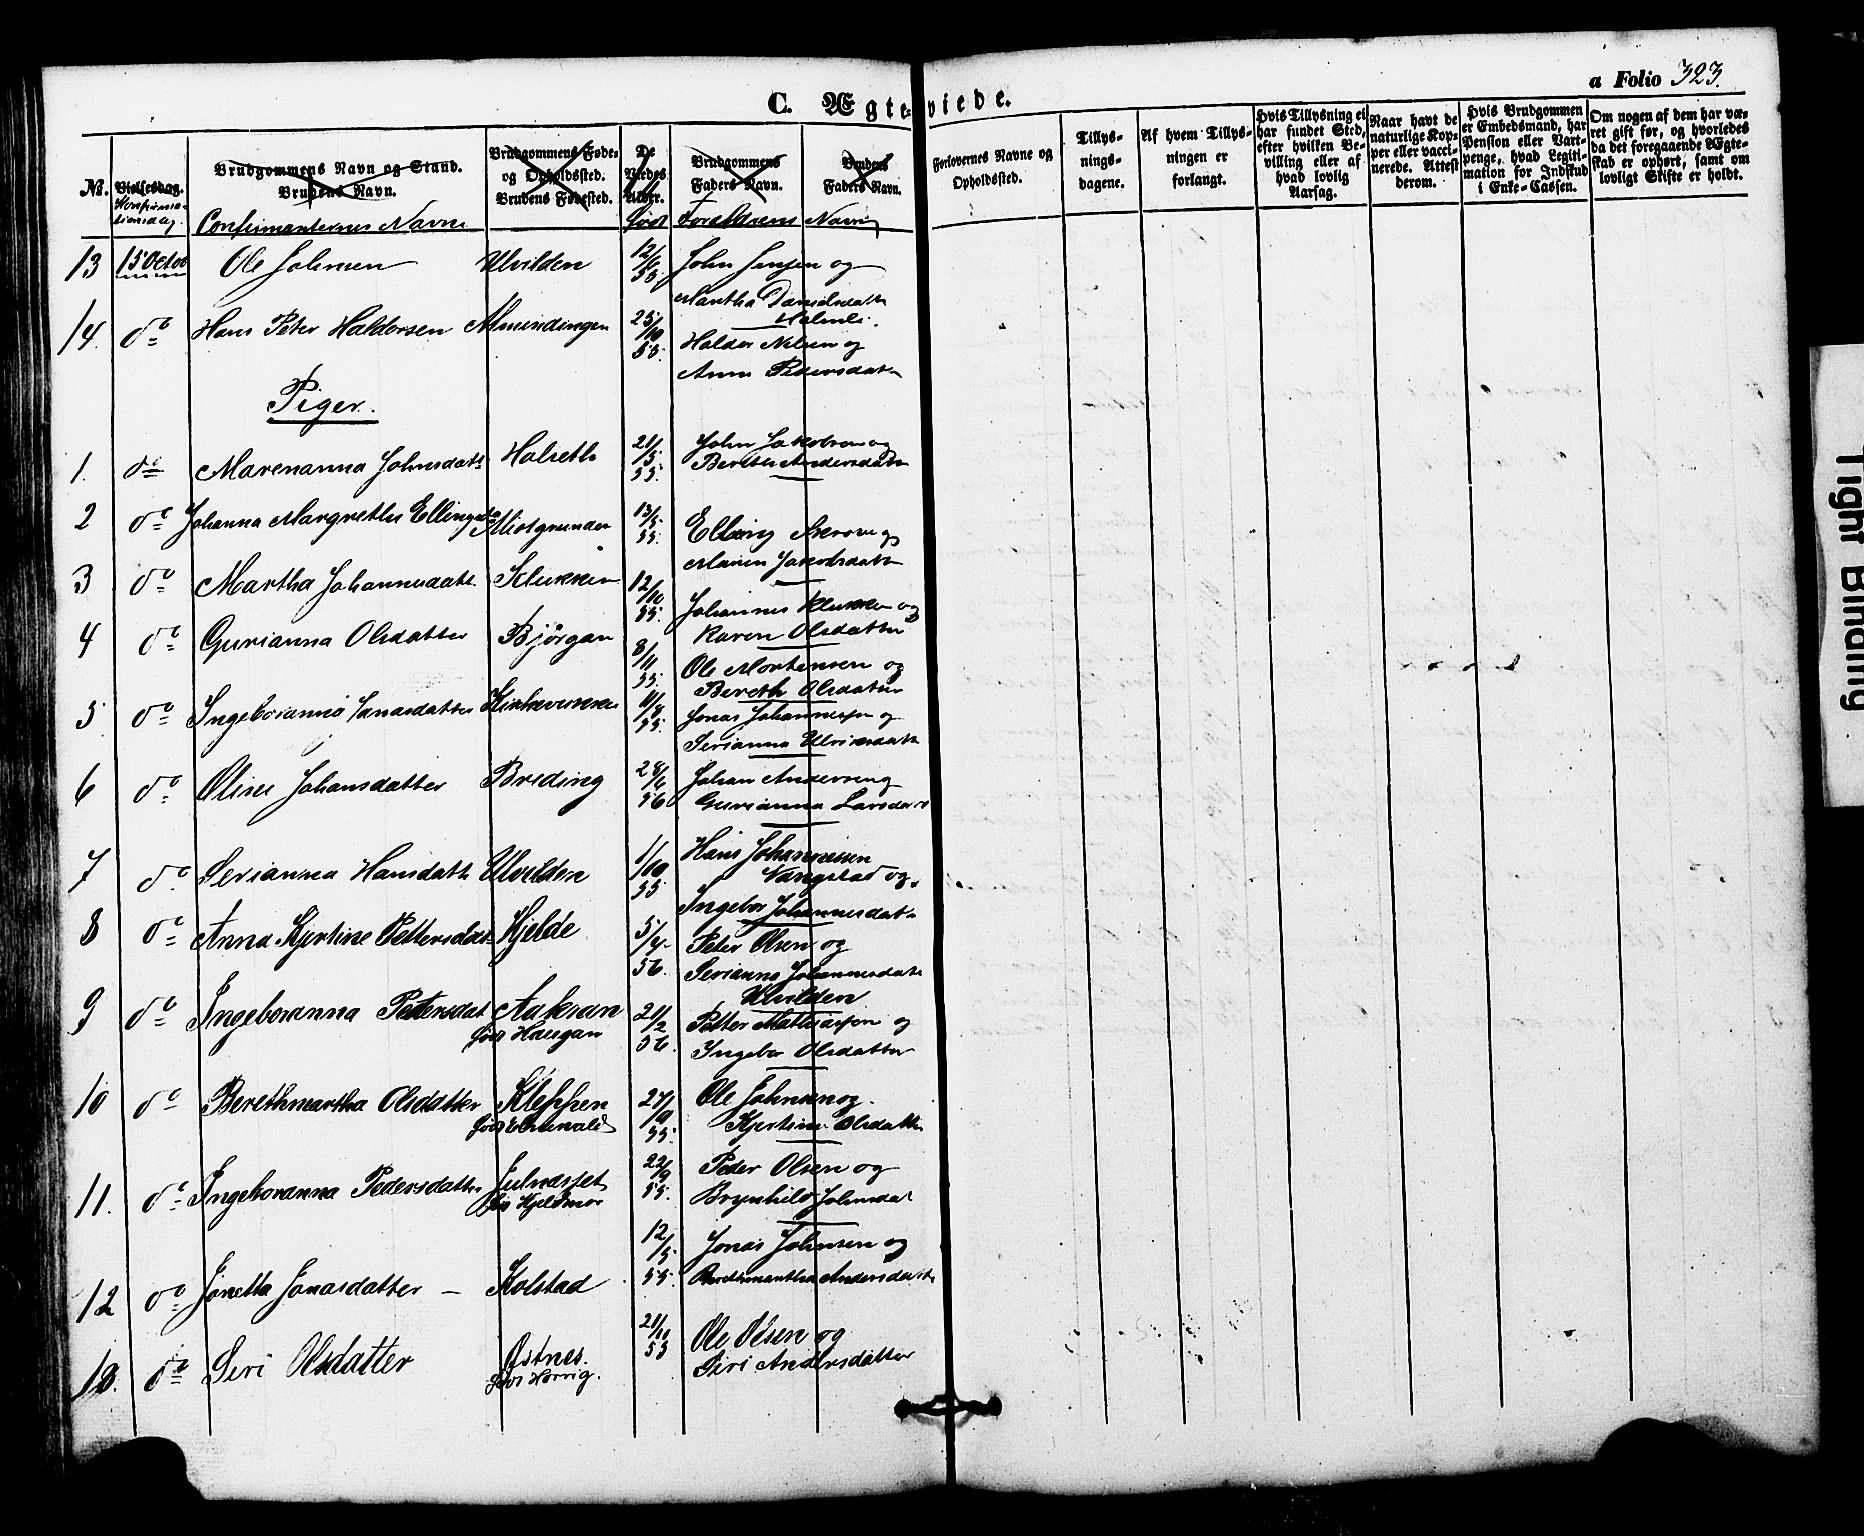 C. Ægteviede.
a Folio 323.
No. Vielsesdag. Brudgommens Navn og Stand. Brudens Navn. Brudgommens Føde- og Opholdssted. Brudens Fødested. De Viedes Alder. Brudgommens Faders Navn. Brudens Faders Navn.
Konfirmationsdag Confirmanternes Navne født Forældrenes Navn
Forlovernes Navne og Opholdssted.
Tillysningsdagene.
Af hvem Tillysningen er forlangt.
Hvis Tillysning ei har fundet Sted, efter hvilken Bevilling eller af hvad lovlig Aarsag.
Naar havt de naturlige Kopper eller vaccinerede. Attest derom.
Hvis Brudgommen er Embedsmand, har Pension eller Vartpenge, hvad Legitimation for Indskud i Enke-Cassen.
Om nogen af dem har været gift før, og hvorledes da det foregaaende Ægteskab er ophørt, samt om lovligt Skifte er holdt.
13 15 Octob Ole Johnsen Ulvilden 12/6 55. John Jensen og
Martha Danielsdatt
Holmli.
14. do Hans Peter Haldorsen Almindingen 25/10 55. Haldor Nilsen og
Anne Pedersdatt
Piger.
1. do Marenanna Johnsdatt Holseth 21/5 55. John Jakobsen og
Bereth Andersdatt
2 do Johanna Margrethe Ellingsd Miosgrunden 13/5 55. Elling Skrove og
Maren Jakobsdatt
3 do Martha Johannesdatt Klukken 12/10 55. Johannes Klukken og
Karen Olsdatter
4 do Gurianna Olsdatter Bjørgan 8/11 55. Ole Mortensen og
Bereth Olsdatter
5 do Ingeboranna Jonasdatter 11/8 55. Jonas Johannessen og
Serianna Ulriksdatt
6 do Oline Johansdatter Breding 28/6 56 Johan Andersen og
Gurianna Larsdatt
7 do. Serianna Hansdatt Ulvilden 1/10 55 Hans Johannessen
Vangstad og
Ingebor Johannesdat
8 do Anna Kjertine Pettersdat Kjelde 5/4 56. Peter Olsen og
Serianna Johannesdatt
Ulvilden
9 do Ingeboranna Petersdat Aakran 21/2 56. Petter Mathiassen og
født Haugan Ingebor Olsdatter
10 do Berethmartha Olsdatter Kleppen 27/10 55. Ole Johnsen og
Kjertine Olsdatt
11. do Ingeboranna Pedersdatter Julnæsset 22/9 55. Peder Olsen og
født Kjeldmo Brynhild Johnsdat
12 do Jonetta Jonasdatter – Kolstad 12/5 55. Jonas Johnsen og
Berethmartha Andersdatt
13. do Siri Olsdatter Østnes. 21/11 55 Ole Olsen og
født Horvig. Siri Andersdatter
Tight Binding